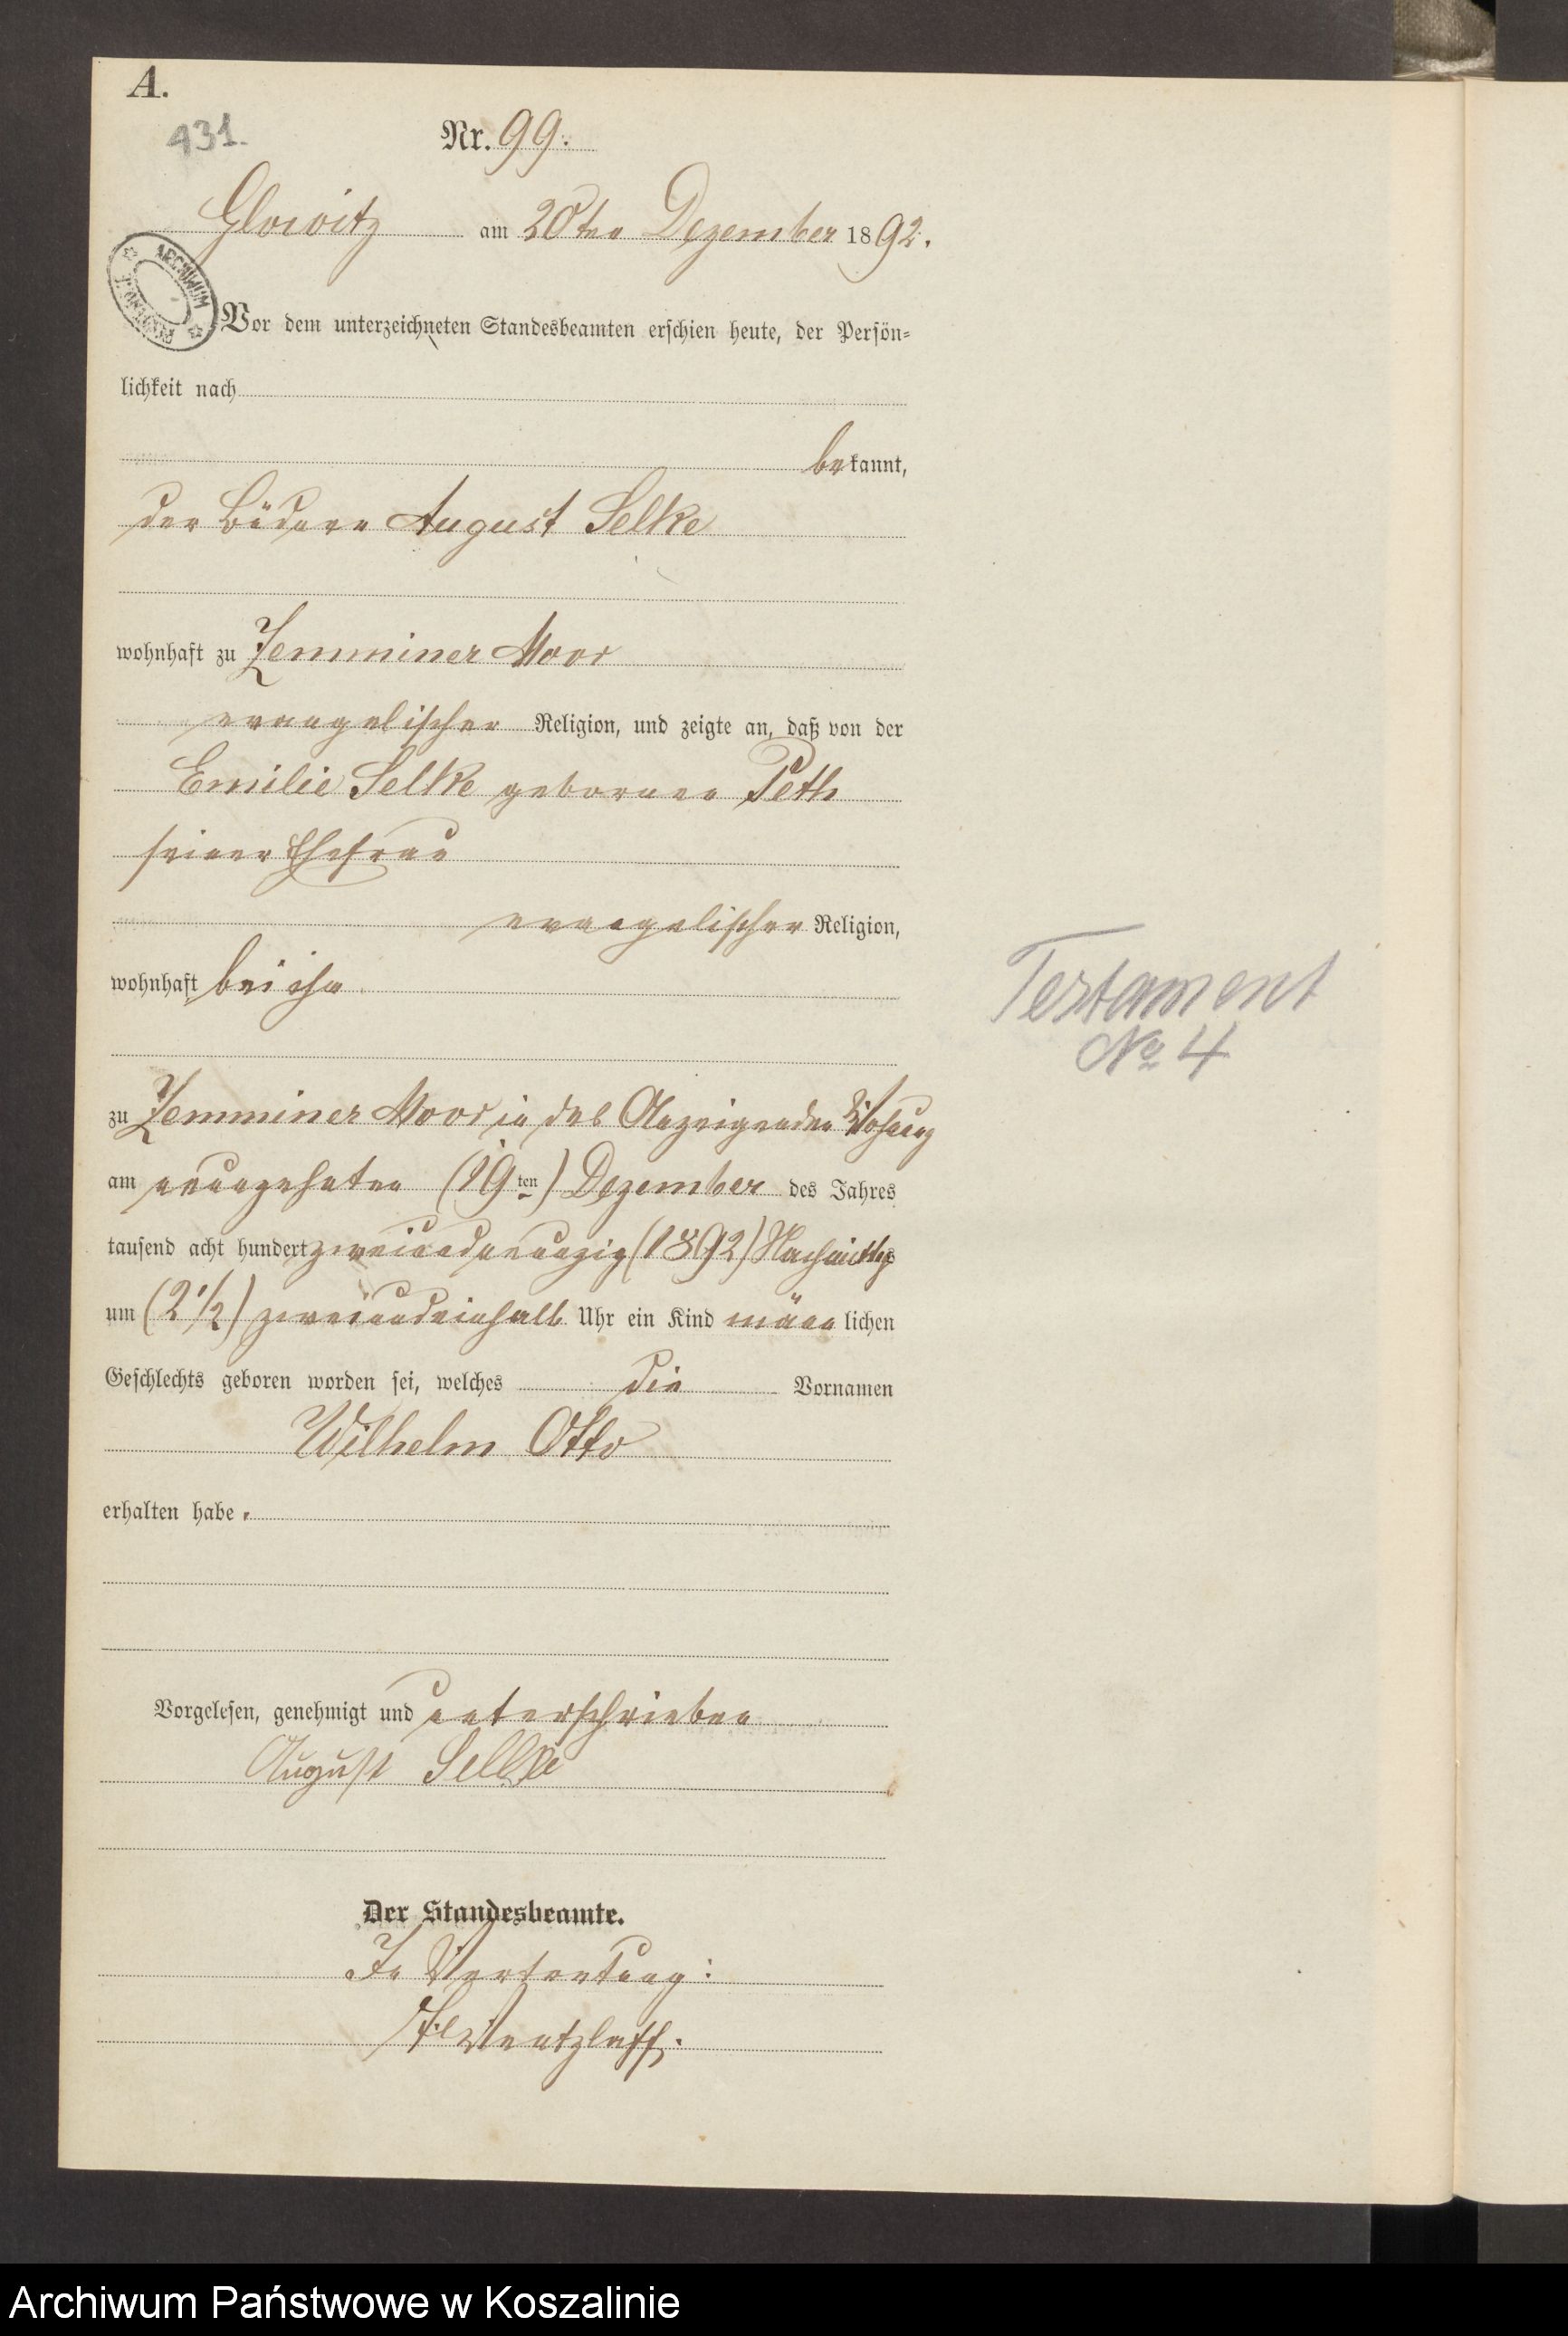 A.
431.
Nr. 99.
Glowitz am 20ten Dezember 1892.
ARCHIWUM
Vor dem unterzeichneten Standesbeamten erschien heute, der Persön=
lichkeit nach
bekannt,
der August Selke
wohnhaft zu Zemminer Moor
evangelischer Religion, und zeigte an, daß von der
Emilie Selke geborenen Peth
seiner Ehefrau
evangelischer Religion,
wohnhaft bei ihm
zu Zemminer Moor in des Anzeigenden Wohnung
am neunzehnten (19ten) Dezember des Jahres
tausend acht hundert zweiundneunzig (1892) Nachmittags
um (2 1/2) zweiundeinhalb Uhr ein Kind männlichen
Geschlechts geboren worden sei, welches die Vornamen
Wilhelm Otto
erhalten habe.
Vorgelesen, genehmigt und unterschrieben
August Selke
Der Standesbeamte.
In Vertretung:
Ventzlaff.
Testament
No 4
Archiwum Państwowe w Koszalinie